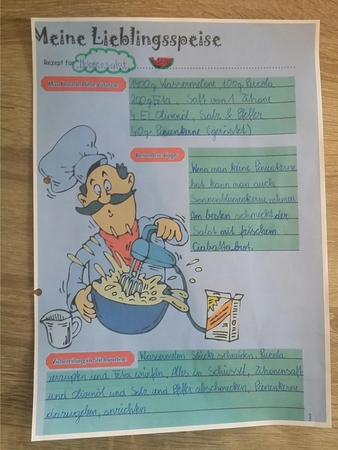 Meine Lieblingsspeise
Rezept für: Melonensalat
1400g Wassermelone, 100g Rucola
200g Feta, Saft von 1 Zitrone
4 El Olivenöl, Salz & Pfeffer
40g Pinienkerne (geröstet)
Wenn man keine Pinienkerne
hat kann man auch
Sonnenblumenkerne nehmen
Am besten schmeckt der
Salat mit frischem
Ciabattabrot.
Wassermelone Stücke schneiden, Rucola
zerrupfen und Feta würfeln, Alles in Schüssel, Zitronensaft
und Olivenöl und Salz und Pfeffer abschmecken, Pinienkerne
dazugeben, anrichten